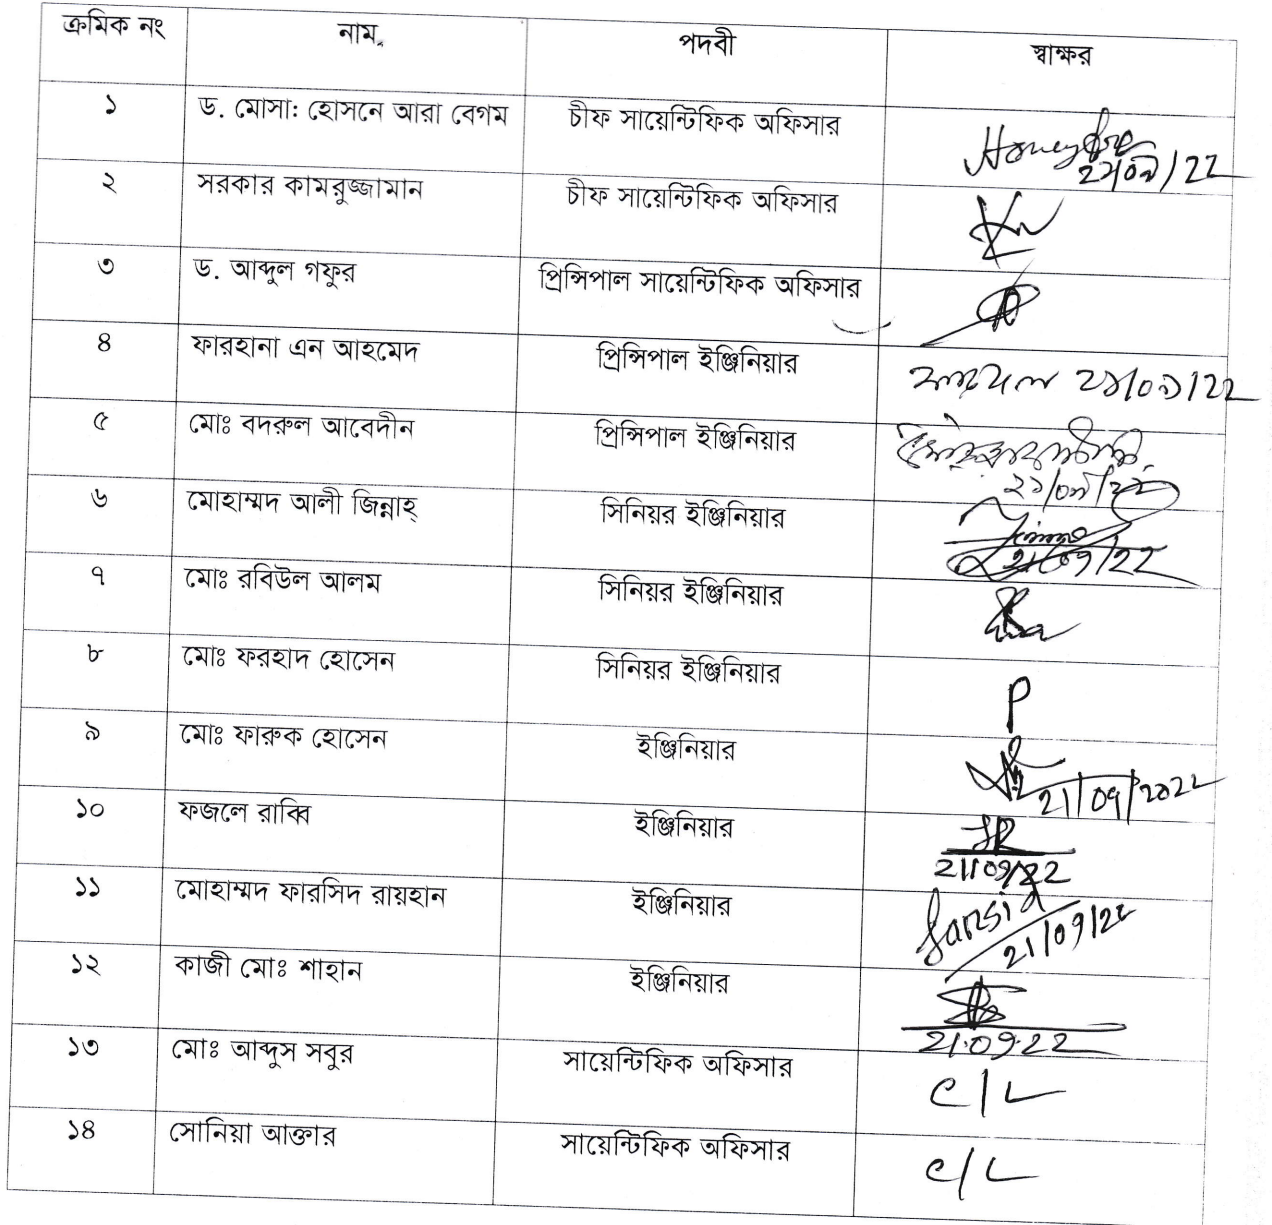 ক্রমিক নং নাম পদবী স্বাক্ষর
১ ড. মোসা: হোসনে আরা বেগম চীফ সায়েন্টিফিক অফিসার
২১/০৯/22
২ সরকার কামরুজ্জামান চীফ সায়েন্টিফিক অফিসার
৩ ড. আব্দুল গফুর প্রিন্সিপাল সায়েন্টিফিক অফিসার
৪ ফারহানা এন আহমেদ প্রিন্সিপাল ইঞ্জিনিয়ার ২১/০৯/22
৫ মোঃ বদরুল আবেদীন প্রিন্সিপাল ইঞ্জিনিয়ার
২১/০৯/২২
৬ মোহাম্মদ আলী জিন্নাহ্ সিনিয়র ইঞ্জিনিয়ার
21/09/22
৭ মোঃ রবিউল আলম সিনিয়র ইঞ্জিনিয়ার
৮ মোঃ ফরহাদ হোসেন সিনিয়র ইঞ্জিনিয়ার P
৯ মোঃ ফারুক হোসেন ইঞ্জিনিয়ার
21/09/2022
১০ ফজলে রাব্বি ইঞ্জিনিয়ার
21/09/22
১১ মোহাম্মদ ফারসিদ রায়হান ইঞ্জিনিয়ার Farsid
21/09/22
১২ কাজী মোঃ শাহান ইঞ্জিনিয়ার
21.09.22
১৩ মোঃ আব্দুস সবুর সায়েন্টিফিক অফিসার C/L
১৪ সোনিয়া আক্তার সায়েন্টিফিক অফিসার C/L